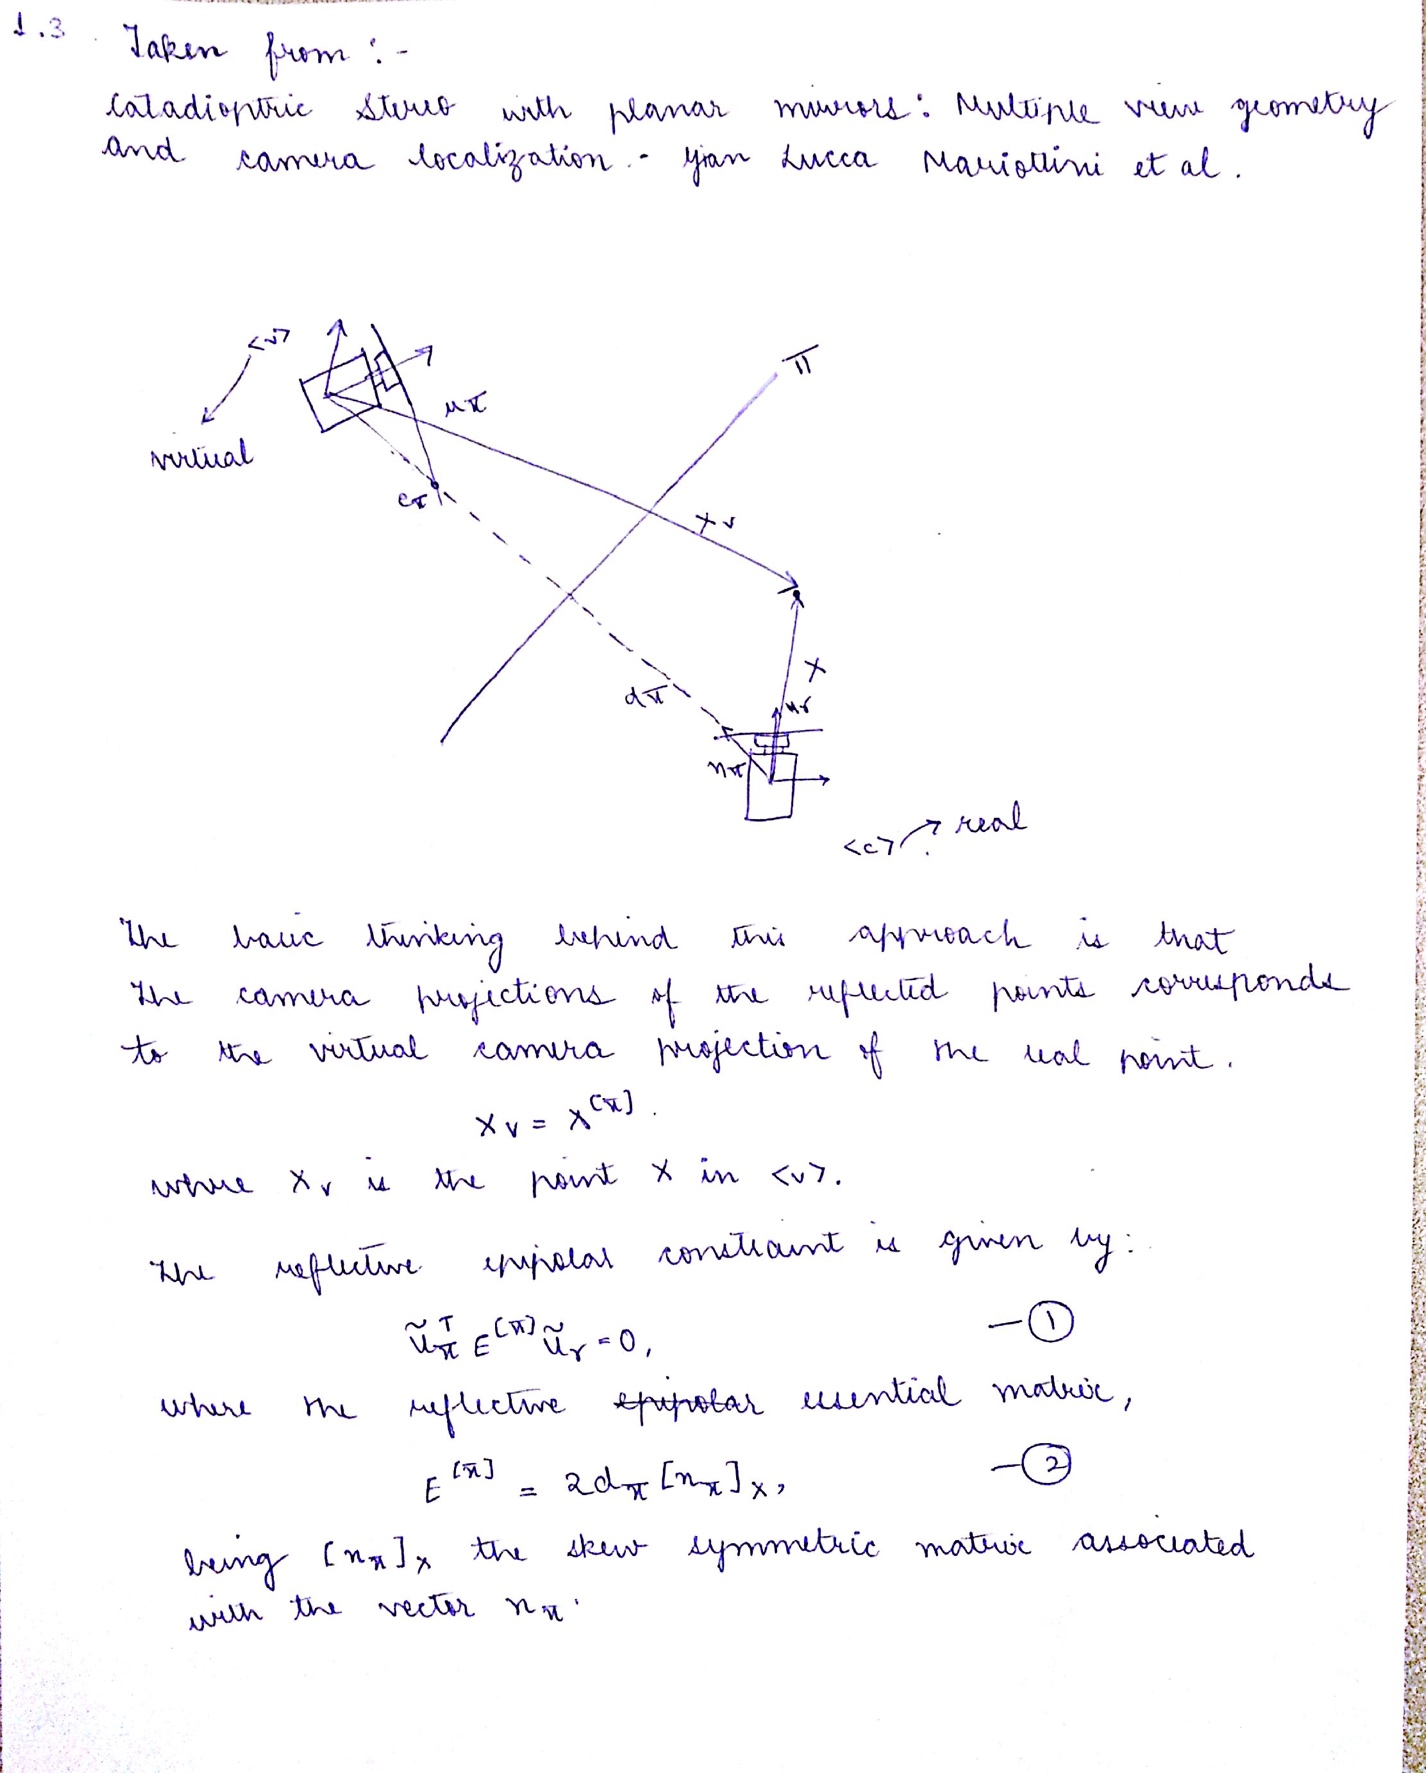 1.3
Taken from :-
Catadioptric Stereo with planar mirrors: Multiple view geometry
and camera localization. - Gian Lucca Mariottini et al.
<v>
π
uπ
virtual
cπ
Xv
X
dπ
ur
nπ
real
<c>
The basic thinking behind this approach is that
the camera projections of the reflected points corresponds
to the virtual camera projection of the real point.
Xv = X^[π].
where Xv is the point X in <v>.
The reflective epipolar constraint is given by:
ũπ^T E^[π] ũr = 0, - ①
where the reflective epipolar essential matrix,
E^[π] = 2dπ [nπ]x, - ②
being [nπ]x the skew symmetric matrix associated
with the vector nπ.